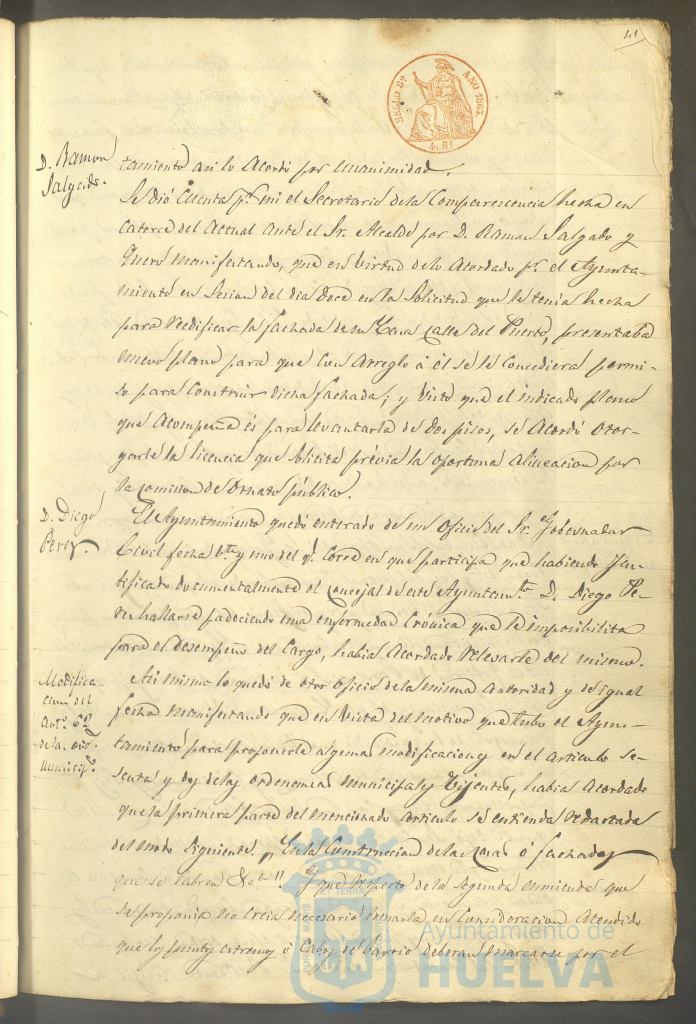 41
SELLO 8º AÑO 1863.
4 Rs
D. Ramon
Salgado.
tamiento asi lo acordó por unanimidad.
Se dió cuenta pr. mi el Secretario dela Comparescencia hecha en
catorce del actual ante el Sr. Alcalde por D. Ramon Salgado y
Quero manifestando, que en virtud delo acordado pr. el Ayunta-
miento en Sesion del dia doce en la solicitud que le tenia hecha
para reedificar la fachada de su Casa calle del Puerto, presentaba
nuevo plano para que con arreglo á él se le concediera permi-
so para construir dicha fachada; y visto que el indicado plano
que acompaña es para levantarla de dos pisos, se acordó otor-
garle la licencia que solicita prévia la oportuna alineacion por
la comision de Ornato público.
D. Diego
Perez.
El Ayuntamiento quedó enterado de un oficio del Sr. Gobernador
Civil fecha vte. y uno del qe. corre en que participa que habiendo jus-
tificado documentalmente el concejal de este Ayuntamto. D. Diego Pe-
rez hallarse padeciendo una enfermedad crónica que le imposibilita
para el desempeño del cargo, habia acordado relevarle del mismo.
Modifica-
cion del
Artº. 62
de las ord.
municips.
Asi mismo lo quedó de otro oficio dela misma autoridad y de igual
fecha manifestando que en vista del motivo que tubo el Ayun-
tamiento para proponerle algunas modificaciones en el articulo se-
senta y dos de las ordenanzas municipales vijentes, habia acordado
que la primera parte del mencionado articulo se entienda redactada
del modo siguiente. "En la construccion de las casas ó fachadas
que se labren &c." Y que respecto de la segunda enmienda que
se proponia no creia necesario tomarla en consideracion atendido
que los puntos estremos ó cabos de barrio deberan marcarse por el
Ayuntamiento de
HUELVA